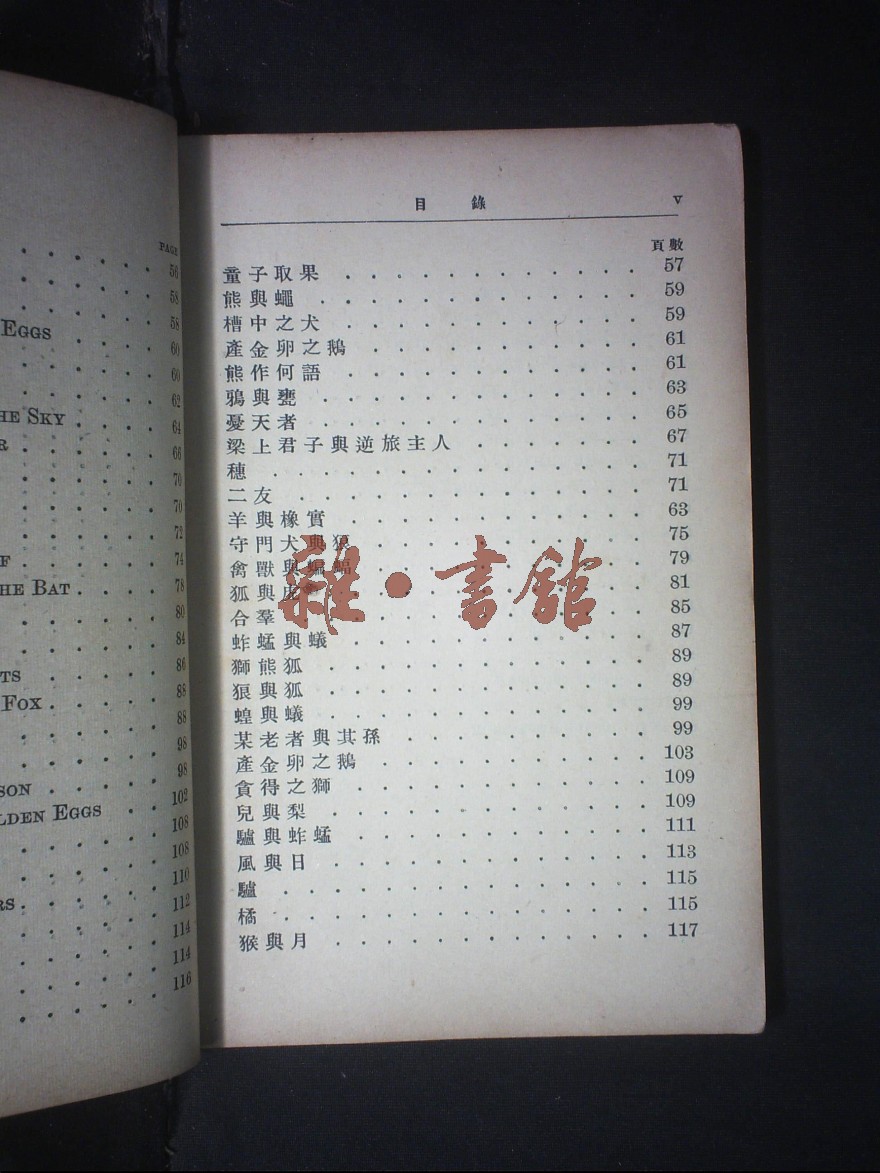 PAGE
56
58
58
EGGS 60
60
62
HE SKY 64
R 66
70
70
72
F 74
HE BAT 78
80
84
TS 86
FOX 88
88
98
SON 98
LDEN EGGS 102
108
108
RS 110
112
114
114
116
目錄 v
頁數
童子取果 57
熊與蠅 59
槽中之犬 59
產金卵之鵝 61
熊作何語 61
鴉與甕 63
憂天者 65
梁上君子與逆旅主人 67
穗 71
二友 71
羊與橡實 63
守門犬與狼 75
禽獸與蝙蝠 79
狐與 81
合羣 85
蚱蜢與蟻 87
獅熊狐 89
狼與狐 89
蝗與蟻 99
某老者與其孫 99
產金卵之鵝 103
貪得之獅 109
兒與梨 109
驢與蚱蜢 111
風與日 113
驢 115
橘 115
猴與月 117
雜·書館